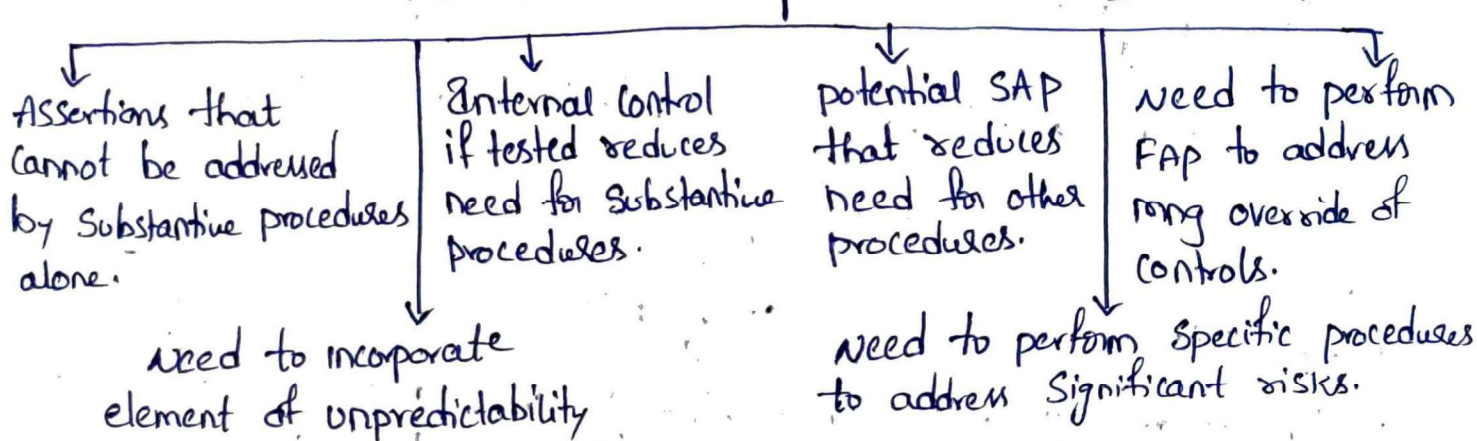 Assertions that
cannot be addressed
by substantive procedures
alone.
Internal control
if tested reduces
need for substantive
procedures.
potential SAP
that reduces
need for other
procedures.
Need to perform
FAP to address
mng override of
controls.
Need to incorporate
element of unpredictability
Need to perform specific procedures
to address significant risks.